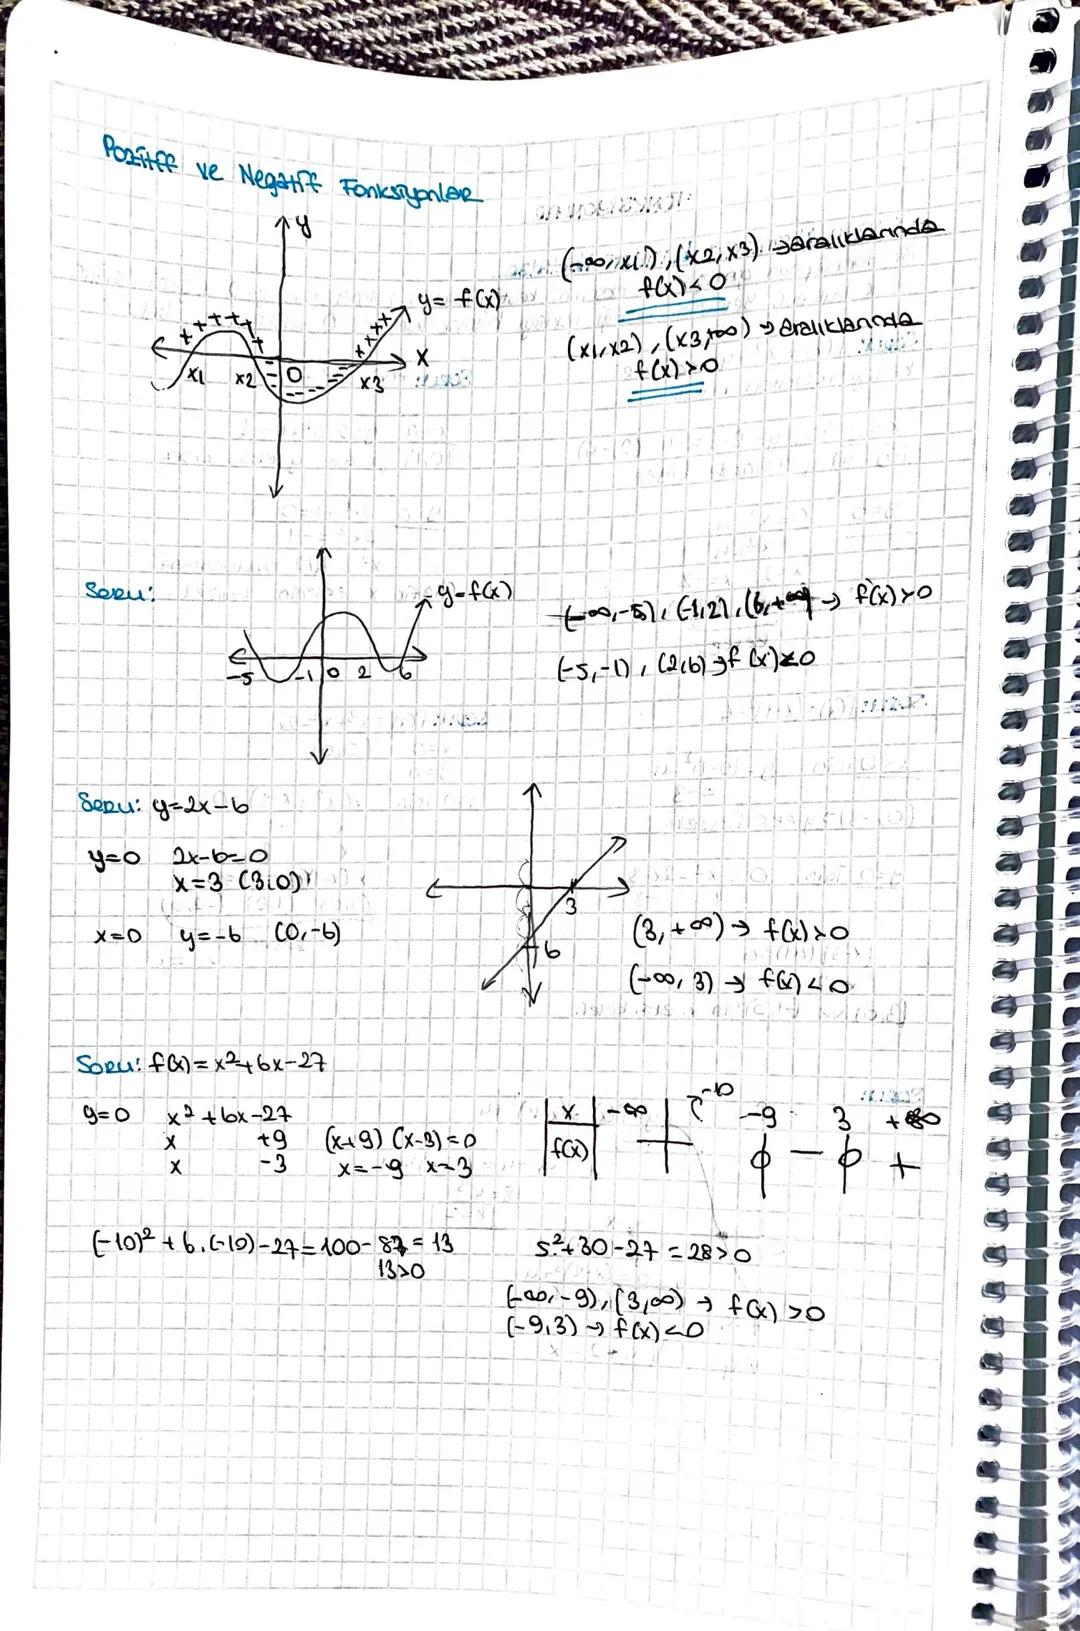 Pozitif ve Negatif Fonksiyonlar
y
y = f(x)
+ + + + + +
x x x x
x
x1 x2 O x3
(-∞, x1), (x2, x3) → aralıklarında
f(x) < 0
(x1, x2), (x3, +∞) → aralıklarında
f(x) > 0
Soru:
y = f(x)
-5 -1 0 2 6
(-∞, -5), (-1, 2), (6, +∞) → f(x) > 0
(-5, -1), (2, 6) → f(x) < 0
Soru: y = 2x - 6
y = 0 2x - 6 = 0
x = 3 (3, 0)
x = 0 y = -6 (0, -6)
3
-6
(3, +∞) → f(x) > 0
(-∞, 3) → f(x) < 0
Soru: f(x) = x² + 6x - 27
y = 0 x² + 6x - 27
x +9 (x+9) (x-3) = 0
x -3 x = -9 x = 3
x -∞ -10 -9 3 +∞
f(x) + - +
(-10)² + 6.(-10) - 27 = 100 - 87 = 13
13 > 0
5² + 30 - 27 = 28 > 0
(-∞, -9), (3, ∞) → f(x) > 0
(-9, 3) → f(x) < 0